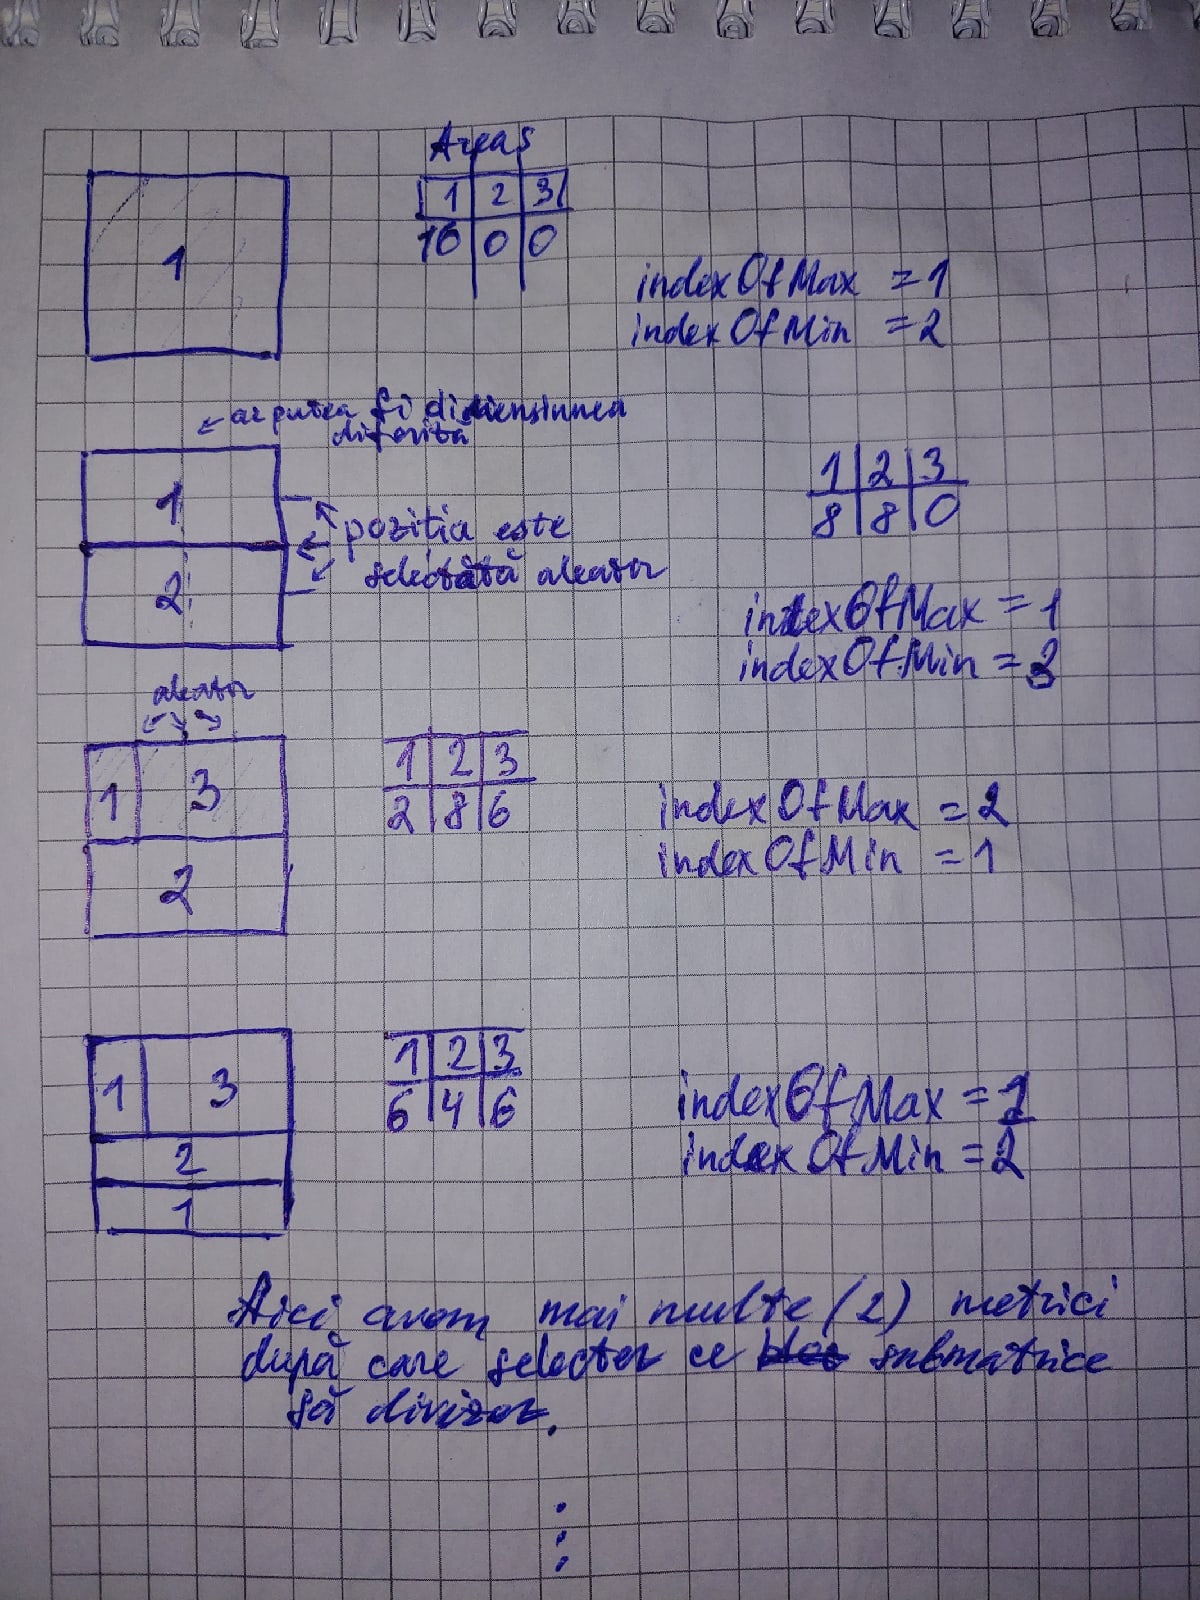 Areas
1 2 3
16 0 0
1
indexOfMax = 1
indexOfMin = 2
← ar putea fi didimensiunea
diferită
1
2
1 2 3
8 8 0
← poziția este
selectată aleator
indexOfMax = 1
indexOfMin = 3
aleator
1 3
2
1 2 3
2 8 6
indexOfMax = 2
indexOfMin = 1
1 3
2
1
1 2 3
6 4 6
indexOfMax = 1
indexOfMin = 2
Aici avem mai multe (2) metrici
după care selector ce submatrice
să divizor.